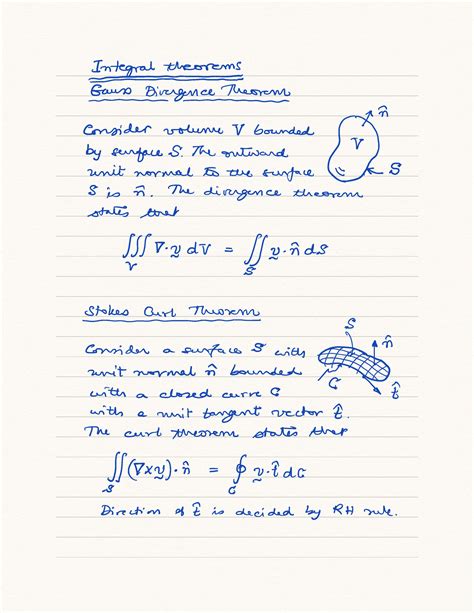 Integral theorems
Gauss Divergence Theorem
Consider volume V bounded
by surface S. The outward
unit normal to the surface
S is n̂. The divergence theorem
states that
n̂
V
S
∭_V ∇·v̰ dV = ∬_S v̰·n̂ dS
Stokes Curl Theorem
Consider a surface S with
unit normal n̂ bounded
with a closed curve C
with a unit tangent vector t̂.
The curl theorem states that
S
n̂
C
t̂
∬_S (∇×v̰)·n̂ = ∮_C v̰·t̂ dC
Direction of t̂ is decided by RH rule.